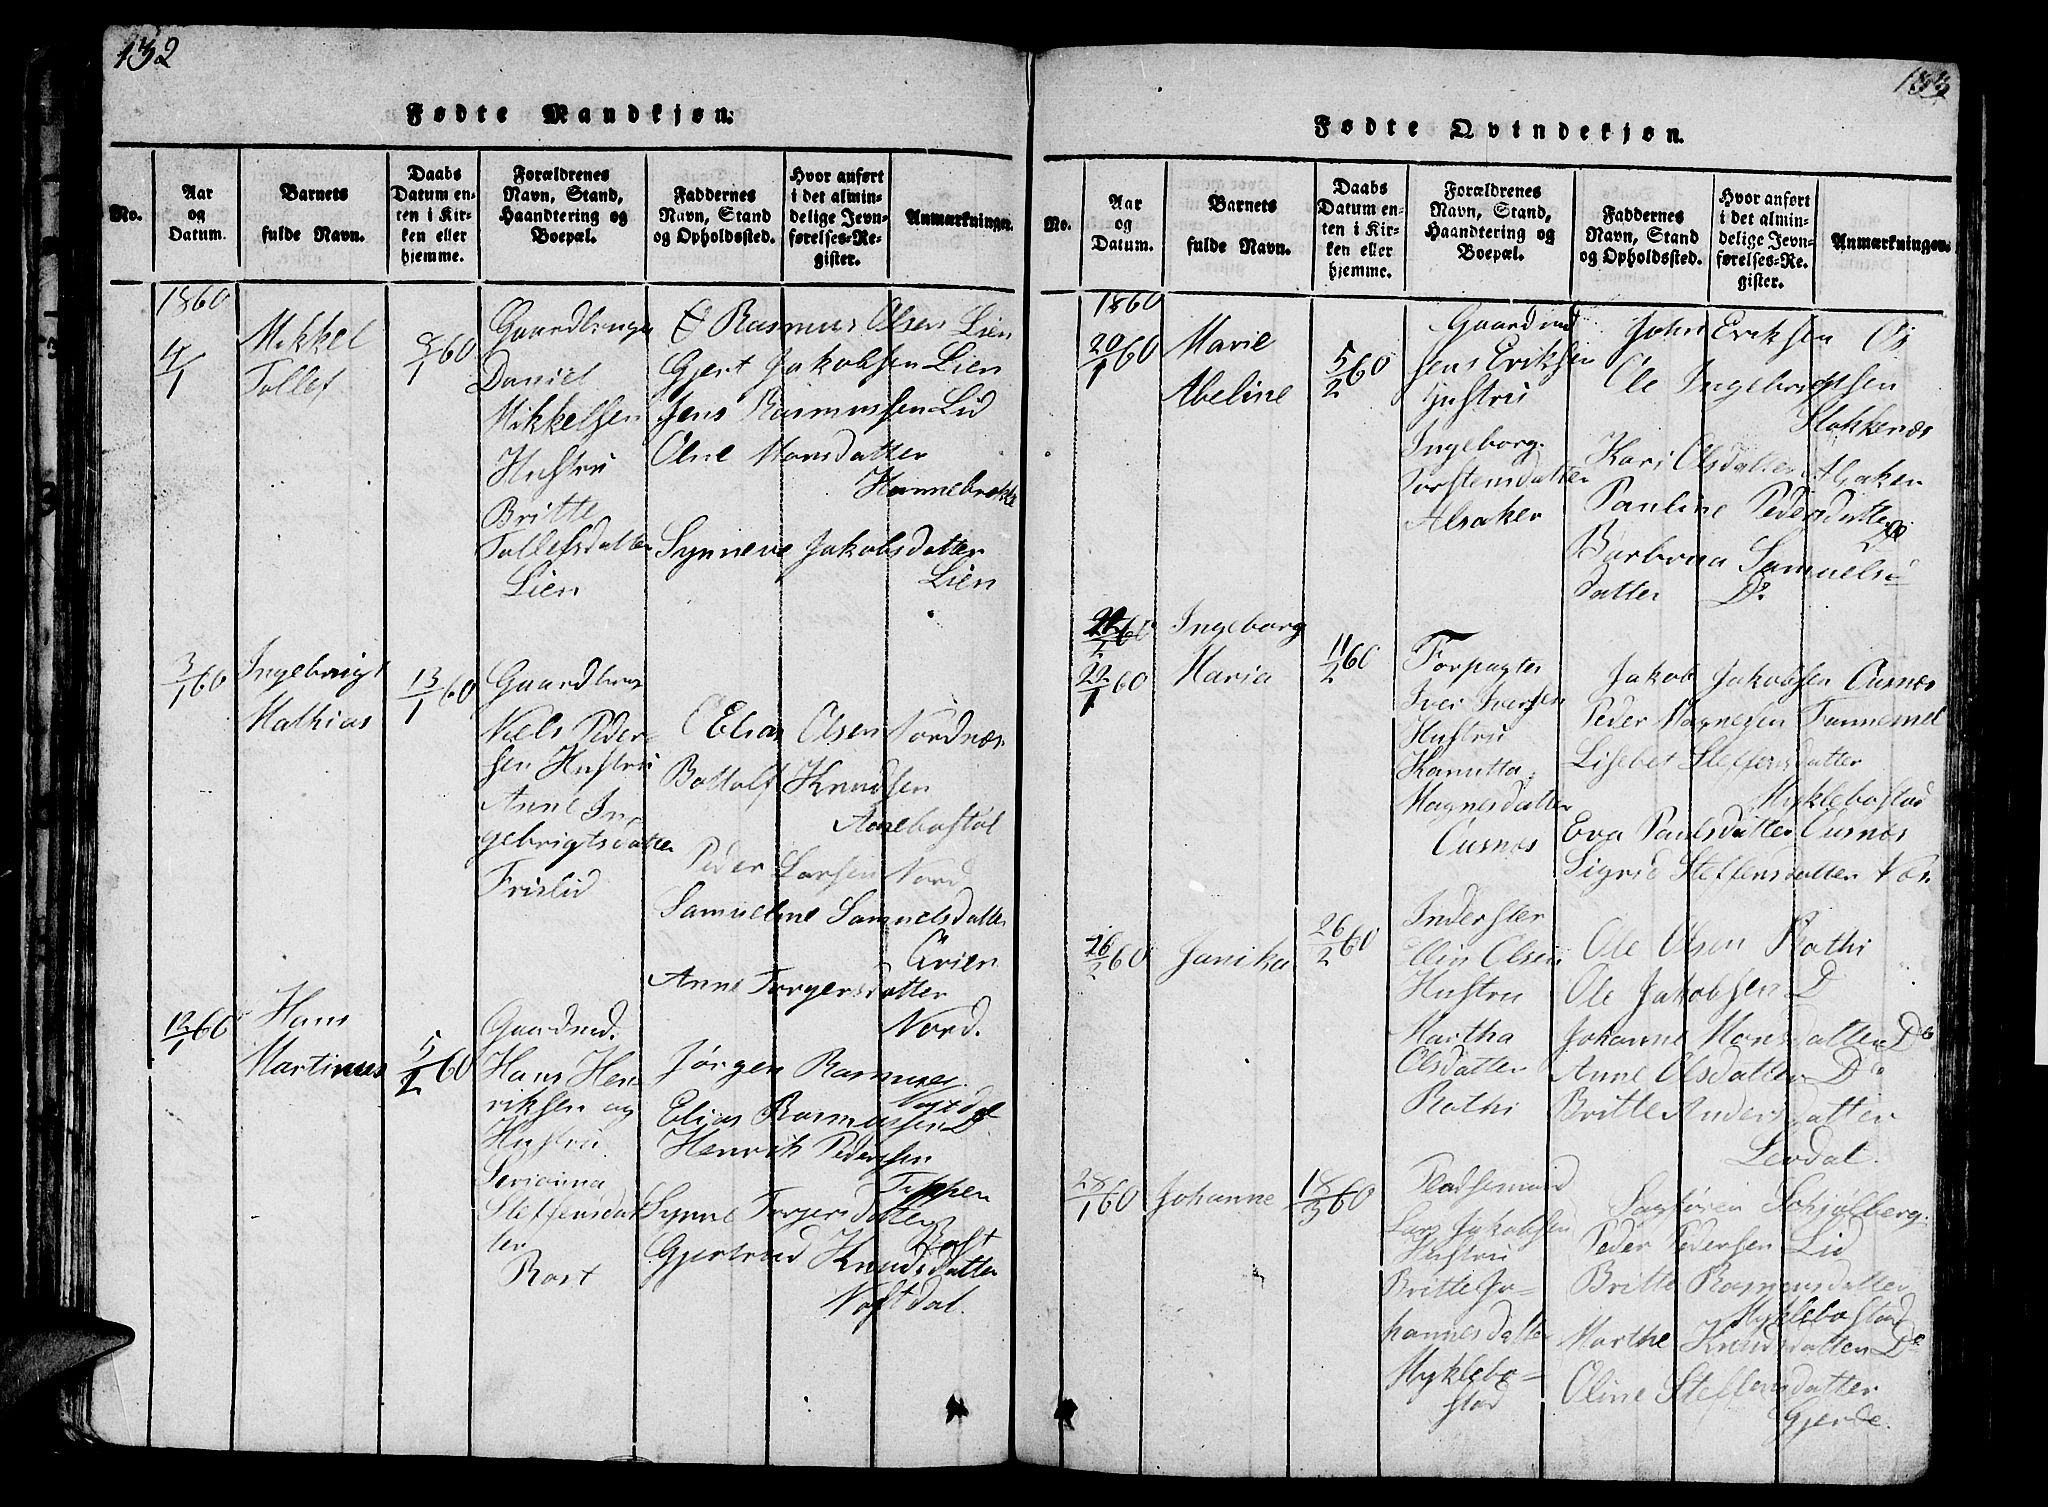 132
Fødte Mandkjøn.
No.
Aar
og
Datum.
Barnets
fulde Navn.
Daabs
Datum en-
ten i Kir-
ken eller
hjemme.
Forældrenes
Navn, Stand,
Haandtering og
Boepæl.
Faddernes
Navn, Stand
og Opholdssted.
Hvor anført
i det almin-
delige Jevn-
førelses-Re-
gister.
Anmærkninger.
1860
4/1
Mikkel
Tollef
8/1 60
Gaardbruger
Daniel
Mikkelsen
Hustru
Britte
Tollefsdatter
Lien
Rasmus Olsen Lien
Gjert Jakobsen Lien
Jens Rasmussen Lid
Oline Monsdatter
Hannebrekke
Synneve Jakobsdatter
Lien
3/1 60
Ingebrigt
Mathias
13/1 60
Gaardbrug
Niels Peder-
sen Hustru
Anne In-
gebrigtsdatter
Frislid
Elias Olsen Nordnæs
Bottolf Knudsen
Aanebostøl
Peder Larsen Nord
Samueline Samuelsdatter
Qvien
Anne Torgersdatter
Nord.
12/1 60
Hans
Martinus
5/2 60
Gaardmd.
Hans Hen-
riksen og
Hustru
Serianna
Steffensdat-
ter
Rost
Jørgen Rasmusen
Elias Rasmussen Do
Henrik Pedersen
Tippen
Synne Torgersdatter
Rost
Gjertrud Knudsdatter
Nostdal.
133
Fødte Qvindekjøn.
No.
Aar
og
Datum.
Barnets
fulde Navn.
Daabs
Datum en-
ten i Kir-
ken eller
hjemme.
Forældrenes
Navn, Stand,
Haandtering og
Boepæl.
Faddernes
Navn, Stand
og Opholdssted.
Hvor anført
i det almin-
delige Jevn-
førelses-Re-
gister.
Anmærkninger.
1860
20/1 60
Marie
Abeline
5/2 60
Gaardmd
Jens Eriksen
Hustru
Ingeborg
Torstensdatter
Alsaker
John Eriksen Os
Ole Ingebrigtsen
Stokkenæs
Kari Olsdatter Alsaker
Pauline Pedersdatter
Do
Barbroa Samuels-
datter Do.
22/1 60
Ingeborg
Maria
11/2 60
Forpagter
Iver Iversen
Hustru
Kanutta
Magnesdatter
Ousnes
Jakob Jakobsen Ousnes
Peder Magnesen Tannemel
Lisebet Steffensdatter
Myklebostad
Eva Paulsdatter Ousnes
Sigrid Steffensdatter
26/2 60
Janika
26/2 60
Inderster
Ellin Olsen
Hustru
Martha
Olsdatter
Rothi
Ole Olsen Rothi
Ole Jakobsen D
Johanne Monsdatter Do
Anne Olsdatter Do
Britte Andersdatter
Levdal.
28/1 60
Johanne
18/3 60
Pladsemand
Lars Jakobsen
Hustru
Britte Jo-
hannesdatter
Myklebo-
stad
Sagfører Schjølberg
Peder Pedersen Lid
Britte Rasmusdatter
Myklebostad
Marthe Knudsdatter Do
Oline Steffensdatter
Gjerde.